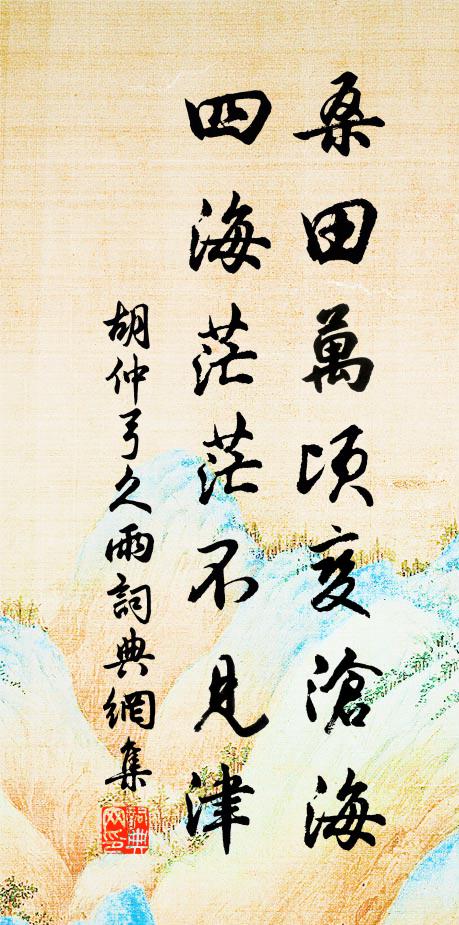 桑田萬頃變滄海
四海茫茫不見津
胡仲弓久雨詞典網集
詞典網印